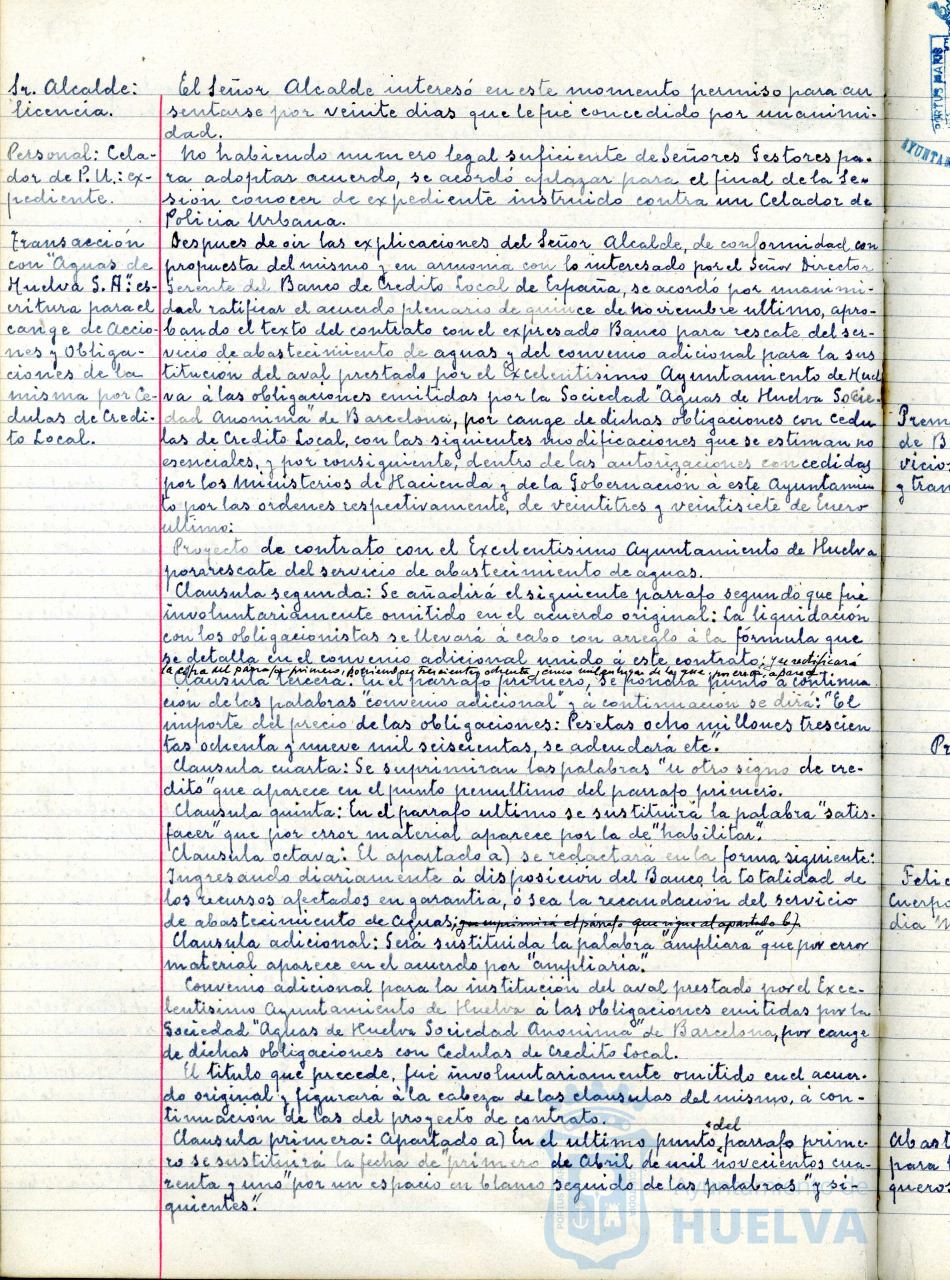 Sr. Alcalde:
licencia.
El Señor Alcalde interesó en este momento permiso para au
sentarse por veinte dias que le fué concedido por unanimi-
dad.
Personal: Cela-
dor de P. U.: ex-
pediente.
No habiendo numero legal suficiente de Señores Gestores pa-
ra adoptar acuerdo, se acordó aplazar para el final de la Se-
sión conocer de expediente instruido contra un Celador de
Policia Urbana.
Transacción
con "Aguas de
Huelva S. A": es-
critura para el
cange de Accio-
nes y Obliga-
ciones de la
misma por Ce-
dulas de Credi-
to Local.
Despues de oir las explicaciones del Señor Alcalde, de conformidad con
propuesta del mismo y en armonia con lo interesado por el Señor Director
Gerente del Banco de Credito Local de España, se acordó por unanimi-
dad ratificar el acuerdo plenario de quince de noviembre ultimo, apro-
bando el texto del contrato con el expresado Banco para rescate del ser-
vicio de abastecimiento de aguas y del convenio adicional para la sus
titución del aval prestado por el Excelentisimo Ayuntamiento de Huel
va á las obligaciones emitidas por la Sociedad "Aguas de Huelva Socie-
dad Anonima" de Barcelona, por cange de dichas obligaciones con Cedu
las de Credito Local, con las siguientes modificaciones que se estiman no
esenciales, y por consiguiente, dentro de las autorizaciones concedidas
por los Ministerios de Hacienda y de la Gobernación á este Ayuntamien
to por las ordenes respectivamente, de veintitres y veintisiete de Enero
ultimo:
Proyecto de contrato con el Excelentisimo Ayuntamiento de Huelva
para rescate del servicio de abastecimiento de aguas.
Clausula segunda: Se añadirá el siguiente párrafo segundo que fué
involuntariamente omitido en el acuerdo original: La liquidación
con los obligacionistas se llevará á cabo con arreglo á la fórmula que
se detalla en el convenio adicional unido á este contrato; y se rectificará
la cifra del párrafo primero, poniendo trescientos ochenta y cinco mil en lugar de la que, por error, aparece
Clausula tercera: En el parrafo primero, se pondrá punto á continua
ción de las palabras "convenio adicional" y á continuación se dirá: "El
importe del precio de las obligaciones: Pesetas ocho millones trescien
tas ochenta y nueve mil seiscientas, se adeudará etc".
Clausula cuarta: Se suprimiran las palabras "u otro signo de cre-
dito" que aparece en el punto penultimo del parrafo primero.
Clausula quinta: En el parrafo ultimo se sustituirá la palabra "satis-
facer" que por error material aparece por la de "habilitar".
Clausula octava: El apartado a) se redactará en la forma siguiente:
Ingresando diariamente á disposición del Banco, la totalidad de
los recursos afectados en garantia, ó sea la recaudación del servicio
de abastecimiento de aguas; y se suprimirá el párrafo que sigue al apartado b).
Clausula adicional: Será sustituida la palabra "ampliara" que por error
material aparece en el acuerdo por "ampliaria".
Convenio adicional para la institución del aval prestado por el Exce-
lentisimo Ayuntamiento de Huelva á las obligaciones emitidas por la
Sociedad "Aguas de Huelva Sociedad Anonima" de Barcelona, por cange
de dichas obligaciones con Cedulas de Credito Local.
El titulo que precede, fué involuntariamente omitido en el acuer-
do original y figurará á la cabeza de las clausulas del mismo, á con-
tinuación de las del proyecto de contrato.
Clausula primera: Apartado a) En el ultimo punto del parrafo prime-
ro se sustituirá la fecha de "primero de Abril de mil novecientos cua-
renta y uno" por un espacio en blanco seguido de las palabras "y si-
guientes".
Ayuntamiento de
HUELVA
PORTUS MARIS
AYUNTAM
Prem
de B
vicio
y tran
Pr
Felic
Cuerpo
dia
Abast
para
queros